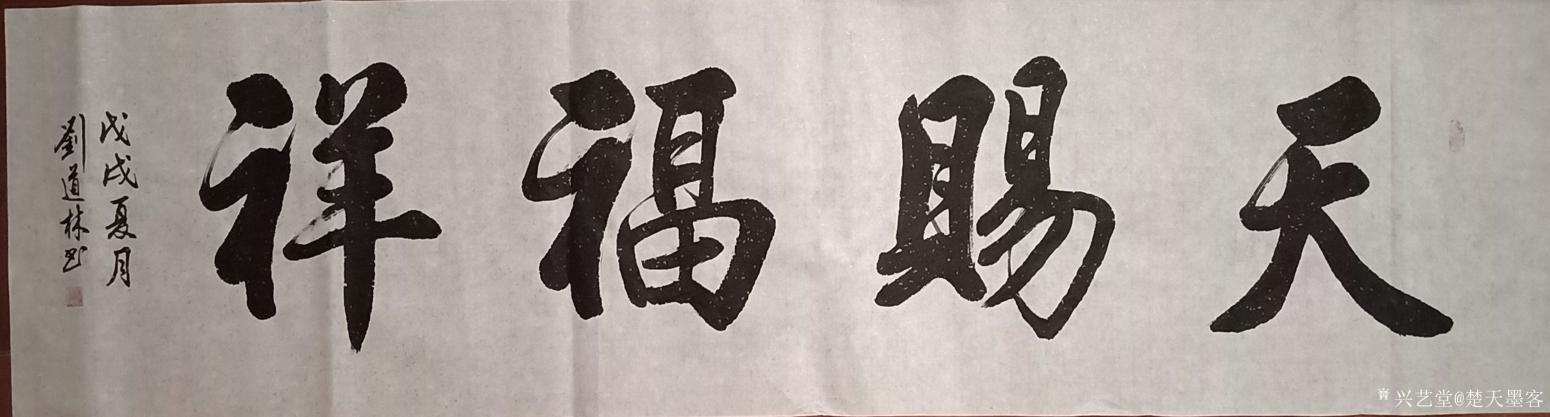 天賜福祥
戊戌夏月
劉道林书
兴艺堂@楚天墨客